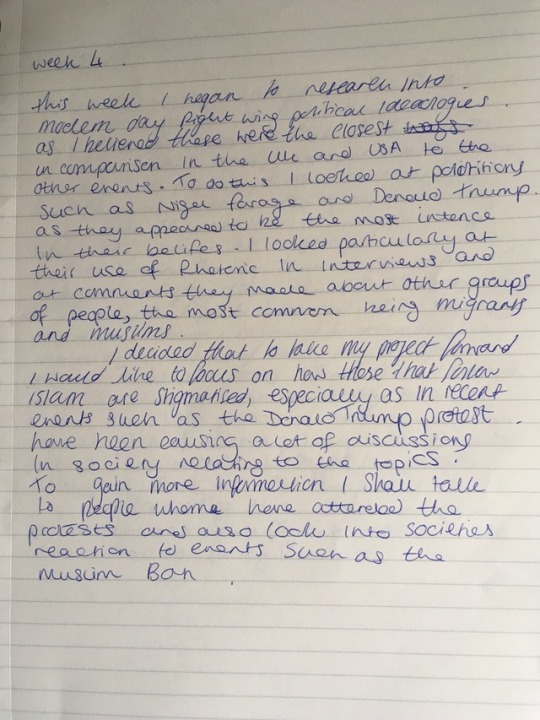 week 4 .
this week I began to research into .
modern day right wing political ideaologies .
as I believed these were the closest ways
in comparison in the UK and USA to the
other events. To do this I looked at polotitions
such as Nigel Farage and Donald Trump.
as they appeared to be the most intence
in their belifes. I looked particularly at
their use of Rhetoric in interviews and
at comments they made about other groups
of people, the most common being migrants
and muslims.
I decided that to take my project forward
I would like to focus on how those that follow
islam are stigmatised, especially as in recent
events such as the Donald Trump protest .
have been causing alot of discussions
in society relating to the topics .
To gain more information I shall talk
to people whome have attended the
protests and also look into societies
reaction to events such as the
Muslim Ban .